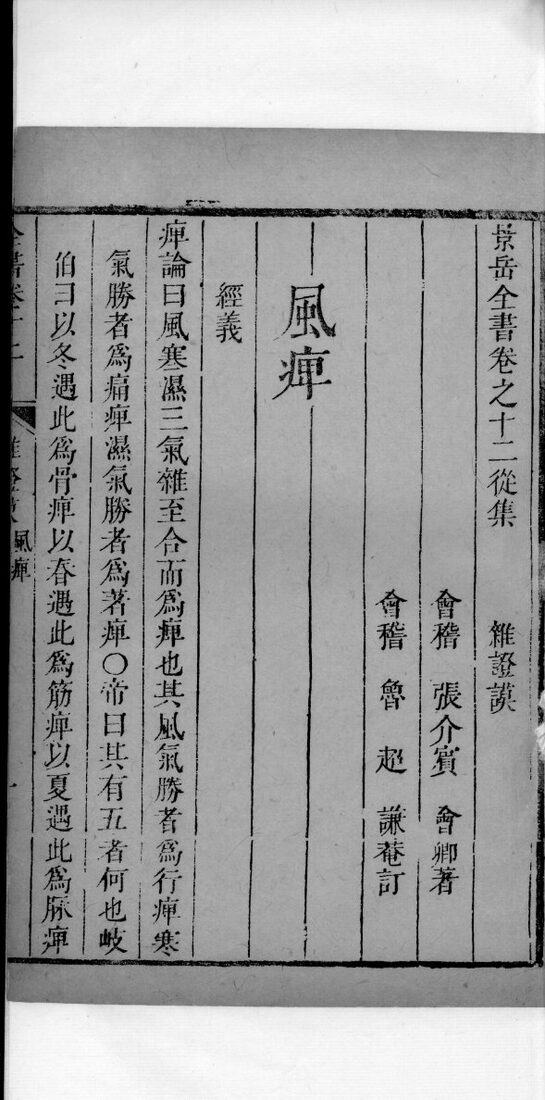 景岳全書卷之十二從集 雜證謨
會稽 張介賓 會卿著
會稽 魯超 謙菴訂
風痺
經義
痺論曰風寒濕三氣雜至合而爲痺也其風氣勝者爲行痺寒
氣勝者爲痛痺濕氣勝者爲著痺〇帝曰其有五者何也岐
伯曰以冬遇此爲骨痺以春遇此爲筋痺以夏遇此爲脉痺
全書卷十二 風痺